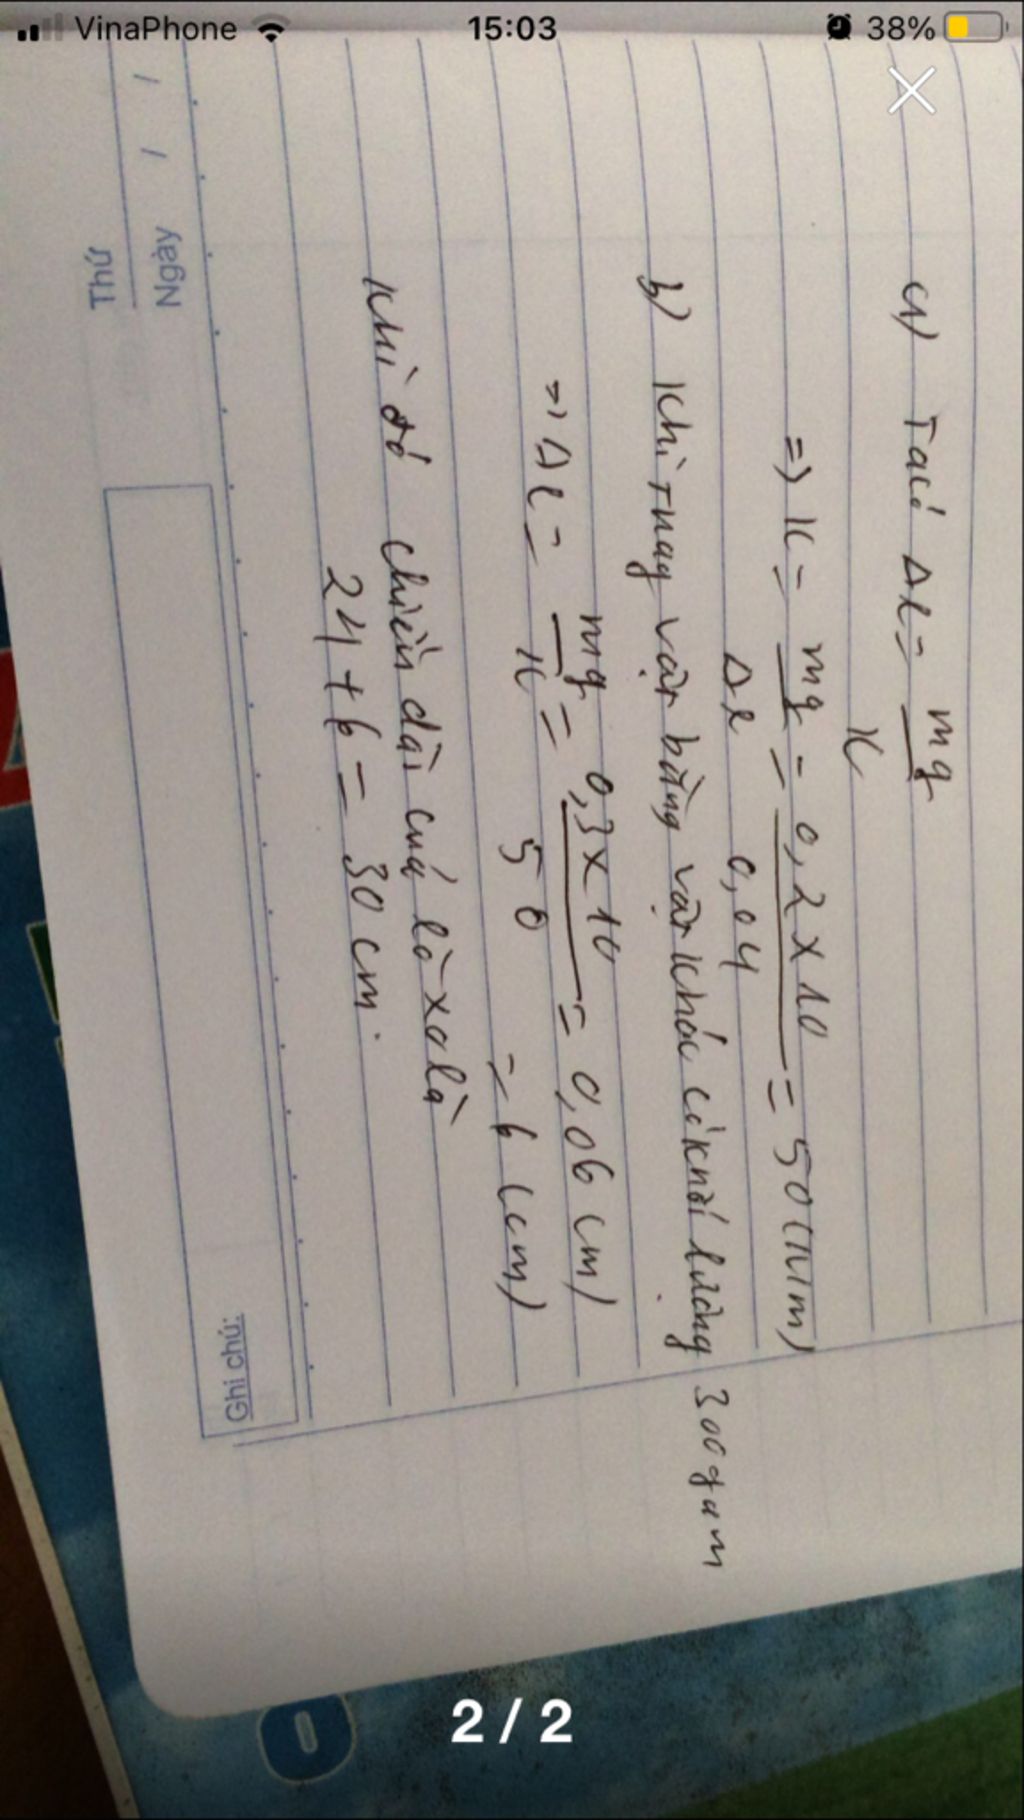 VinaPhone 15:03 38%
Thứ
Ngày / /
a) Ta có Δl = mg
K
=> K = mg = 0,2 x 10 = 50 (N/m)
Δl 0,04
b) Khi thay vật bằng vật khác có khối lượng 300gam
=> Δl = mg = 0,3 x 10 = 0,06 (m)
K 50 = 6 (cm)
Khi đó chiều dài của lò xo là
24 + 6 = 30 cm.
Ghi chú:
2 / 2